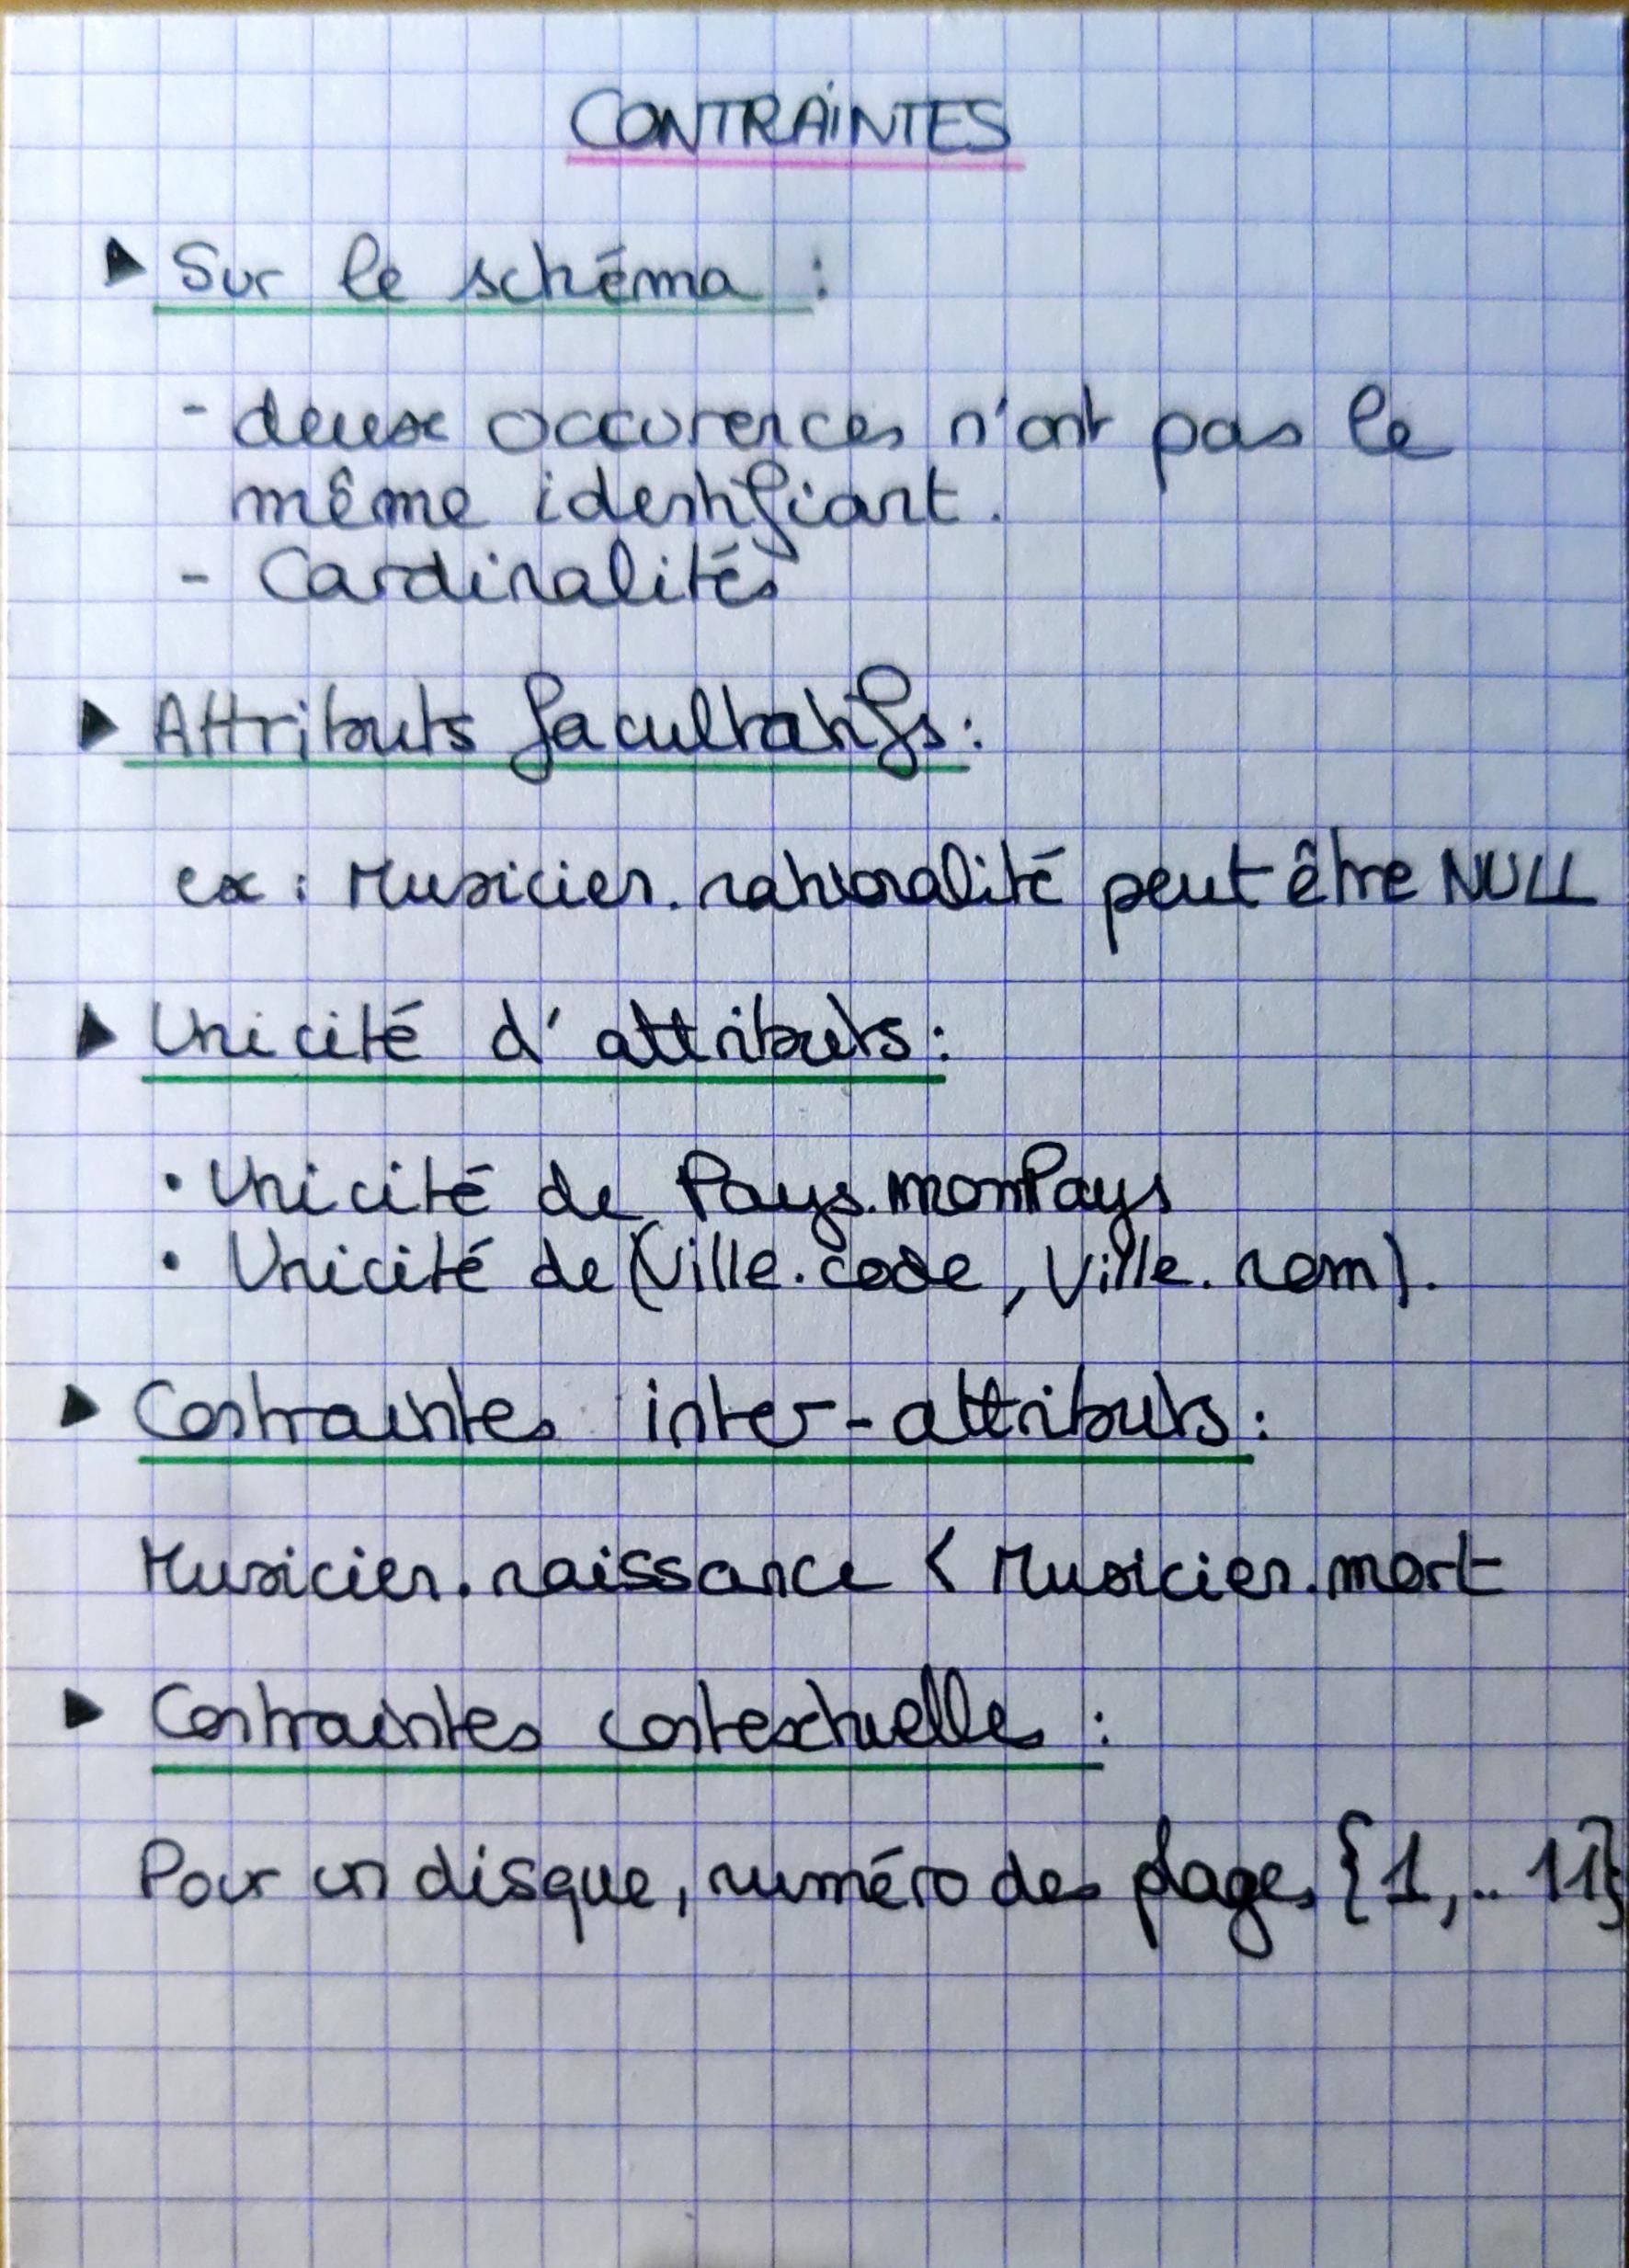 CONTRAINTES
▶ Sur le schéma :
- deux occurences n'ont pas le
même identifiant.
- Cardinalités
▶ Attributs facultatifs :
ex : Musicien.nationalité peut être NULL
▶ Unicité d'attributs :
• Unicité de Pays.monPays
• Unicité de (Ville.code, Ville.nom).
▶ Contraintes inter-attributs :
Musicien.naissance < Musicien.mort
▶ Contraintes contextuelles :
Pour un disque, numéro des plages {1,.. 11}